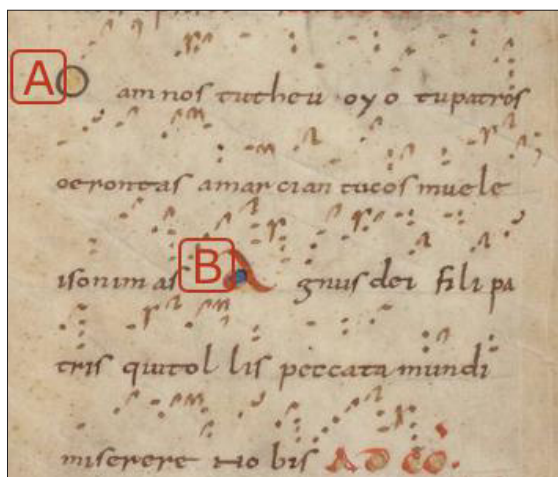 A O am nos tutheu oyo tupatros
oerontas amarcian tucosmu ele
isonim as B Agnus dei fili pa
tris qui tol lis peccata mundi
miserere no bis AD CO.